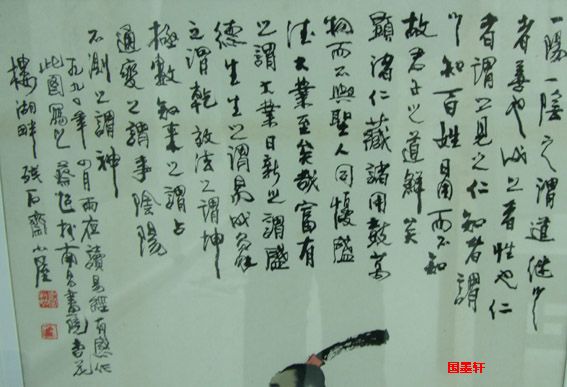 一陽一陰之謂道繼之
者善也成之者性也仁
者謂之見之仁知者謂
之知百姓日用而不知
故君子之道鮮矣
顯諸仁藏諸用鼓萬
物而不與聖人同憂盛
德大業至矣哉富有
之謂大業日新之謂盛
德生生之謂易成象
之謂乾效法之謂坤
極數知來之謂占
通變之謂事陰陽
不測之謂神
一九九〇年四月雨夜讀易經有感作
此圖寫之蔡超於南昌書院杏花
樓湖畔石齋小屋
国墨轩